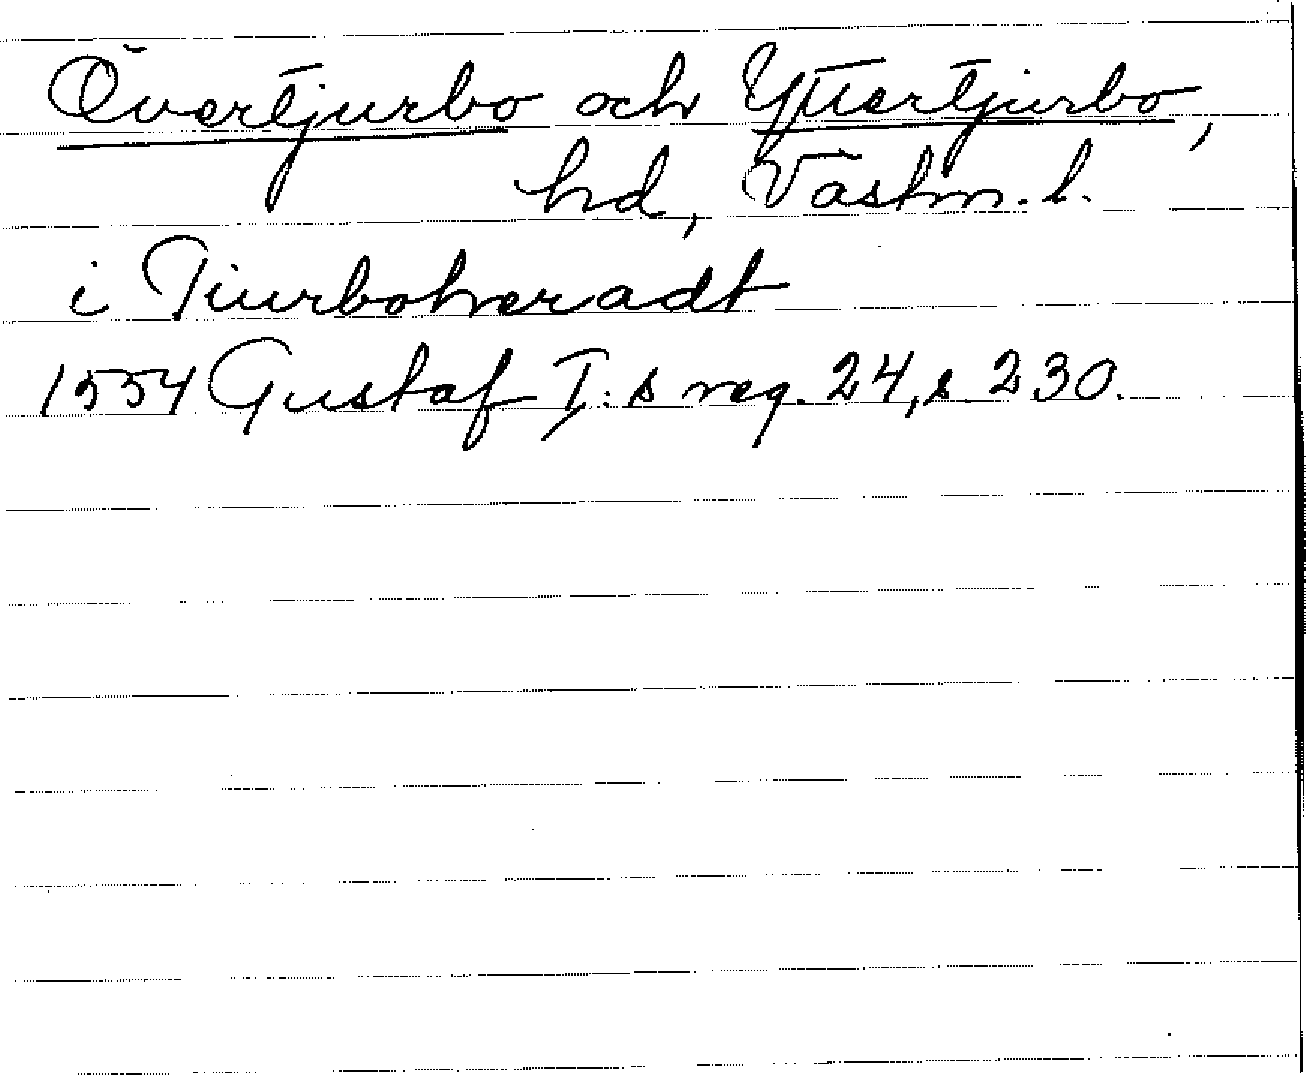 Övertjurbo och Yttertjurbo,
hd, Västm. l.
i Tiurboheradt
1554 Gustaf I:s reg. 24, s. 230.